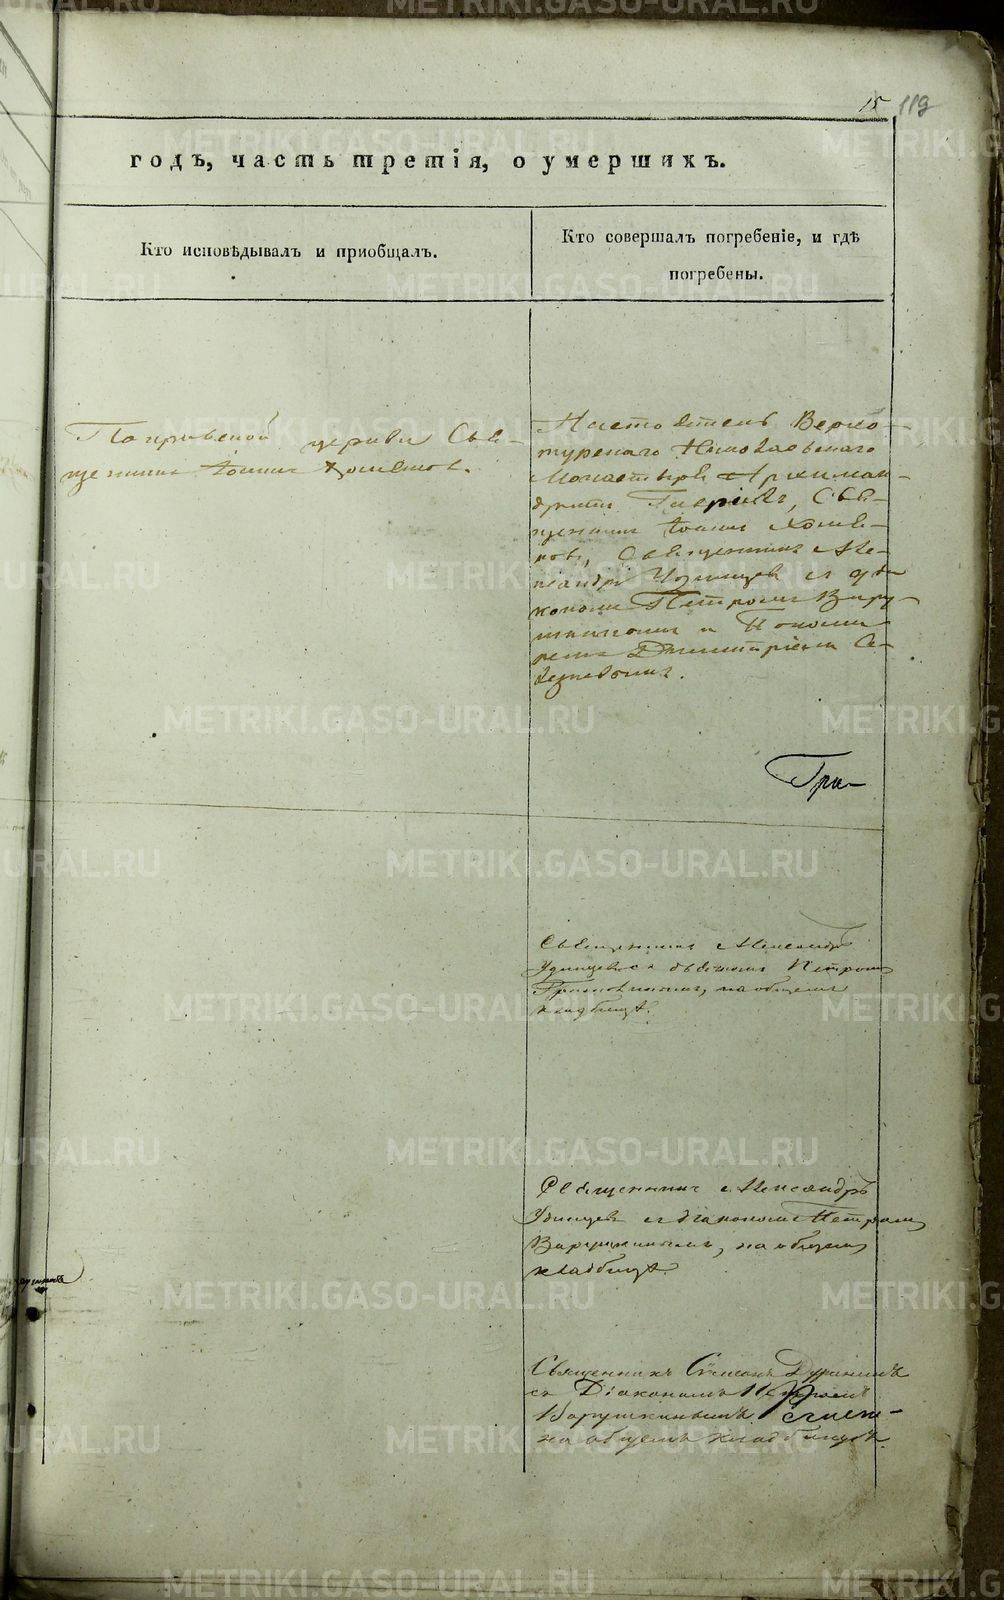 15 119
годъ, часть третія, о умершихъ.
Кто исповѣдывалъ и пріобщалъ.
Кто совершалъ погребеніе, и гдѣ
погребены.
Покровской церкви Свя-
щенникъ Іоаннъ Хомяковъ.
Настоятель Верхо-
турскаго Николаевскаго
Монастыря Архиман-
дритъ Гавріилъ, Свя-
щенникъ Іоаннъ Хомя-
ковъ, Священникъ Але-
ксандръ Удинцевъ съ діа-
кономъ Петромъ Вару-
шкинымъ и Понома-
ремъ Димитріемъ Се-
Гри-
Священникъ Александръ
Удинцевъ съ діакономъ Петромъ
на общемъ
кладбищѣ.
Священникъ Александръ
Удинцевъ съ діакономъ Петромъ
Варушкинымъ, на общемъ
кладбищѣ.
Священникъ Симеонъ
съ Діакономъ Петромъ
Варушкинымъ
на общемъ кладбищѣ.
METRIKI.GASO-URAL.RU